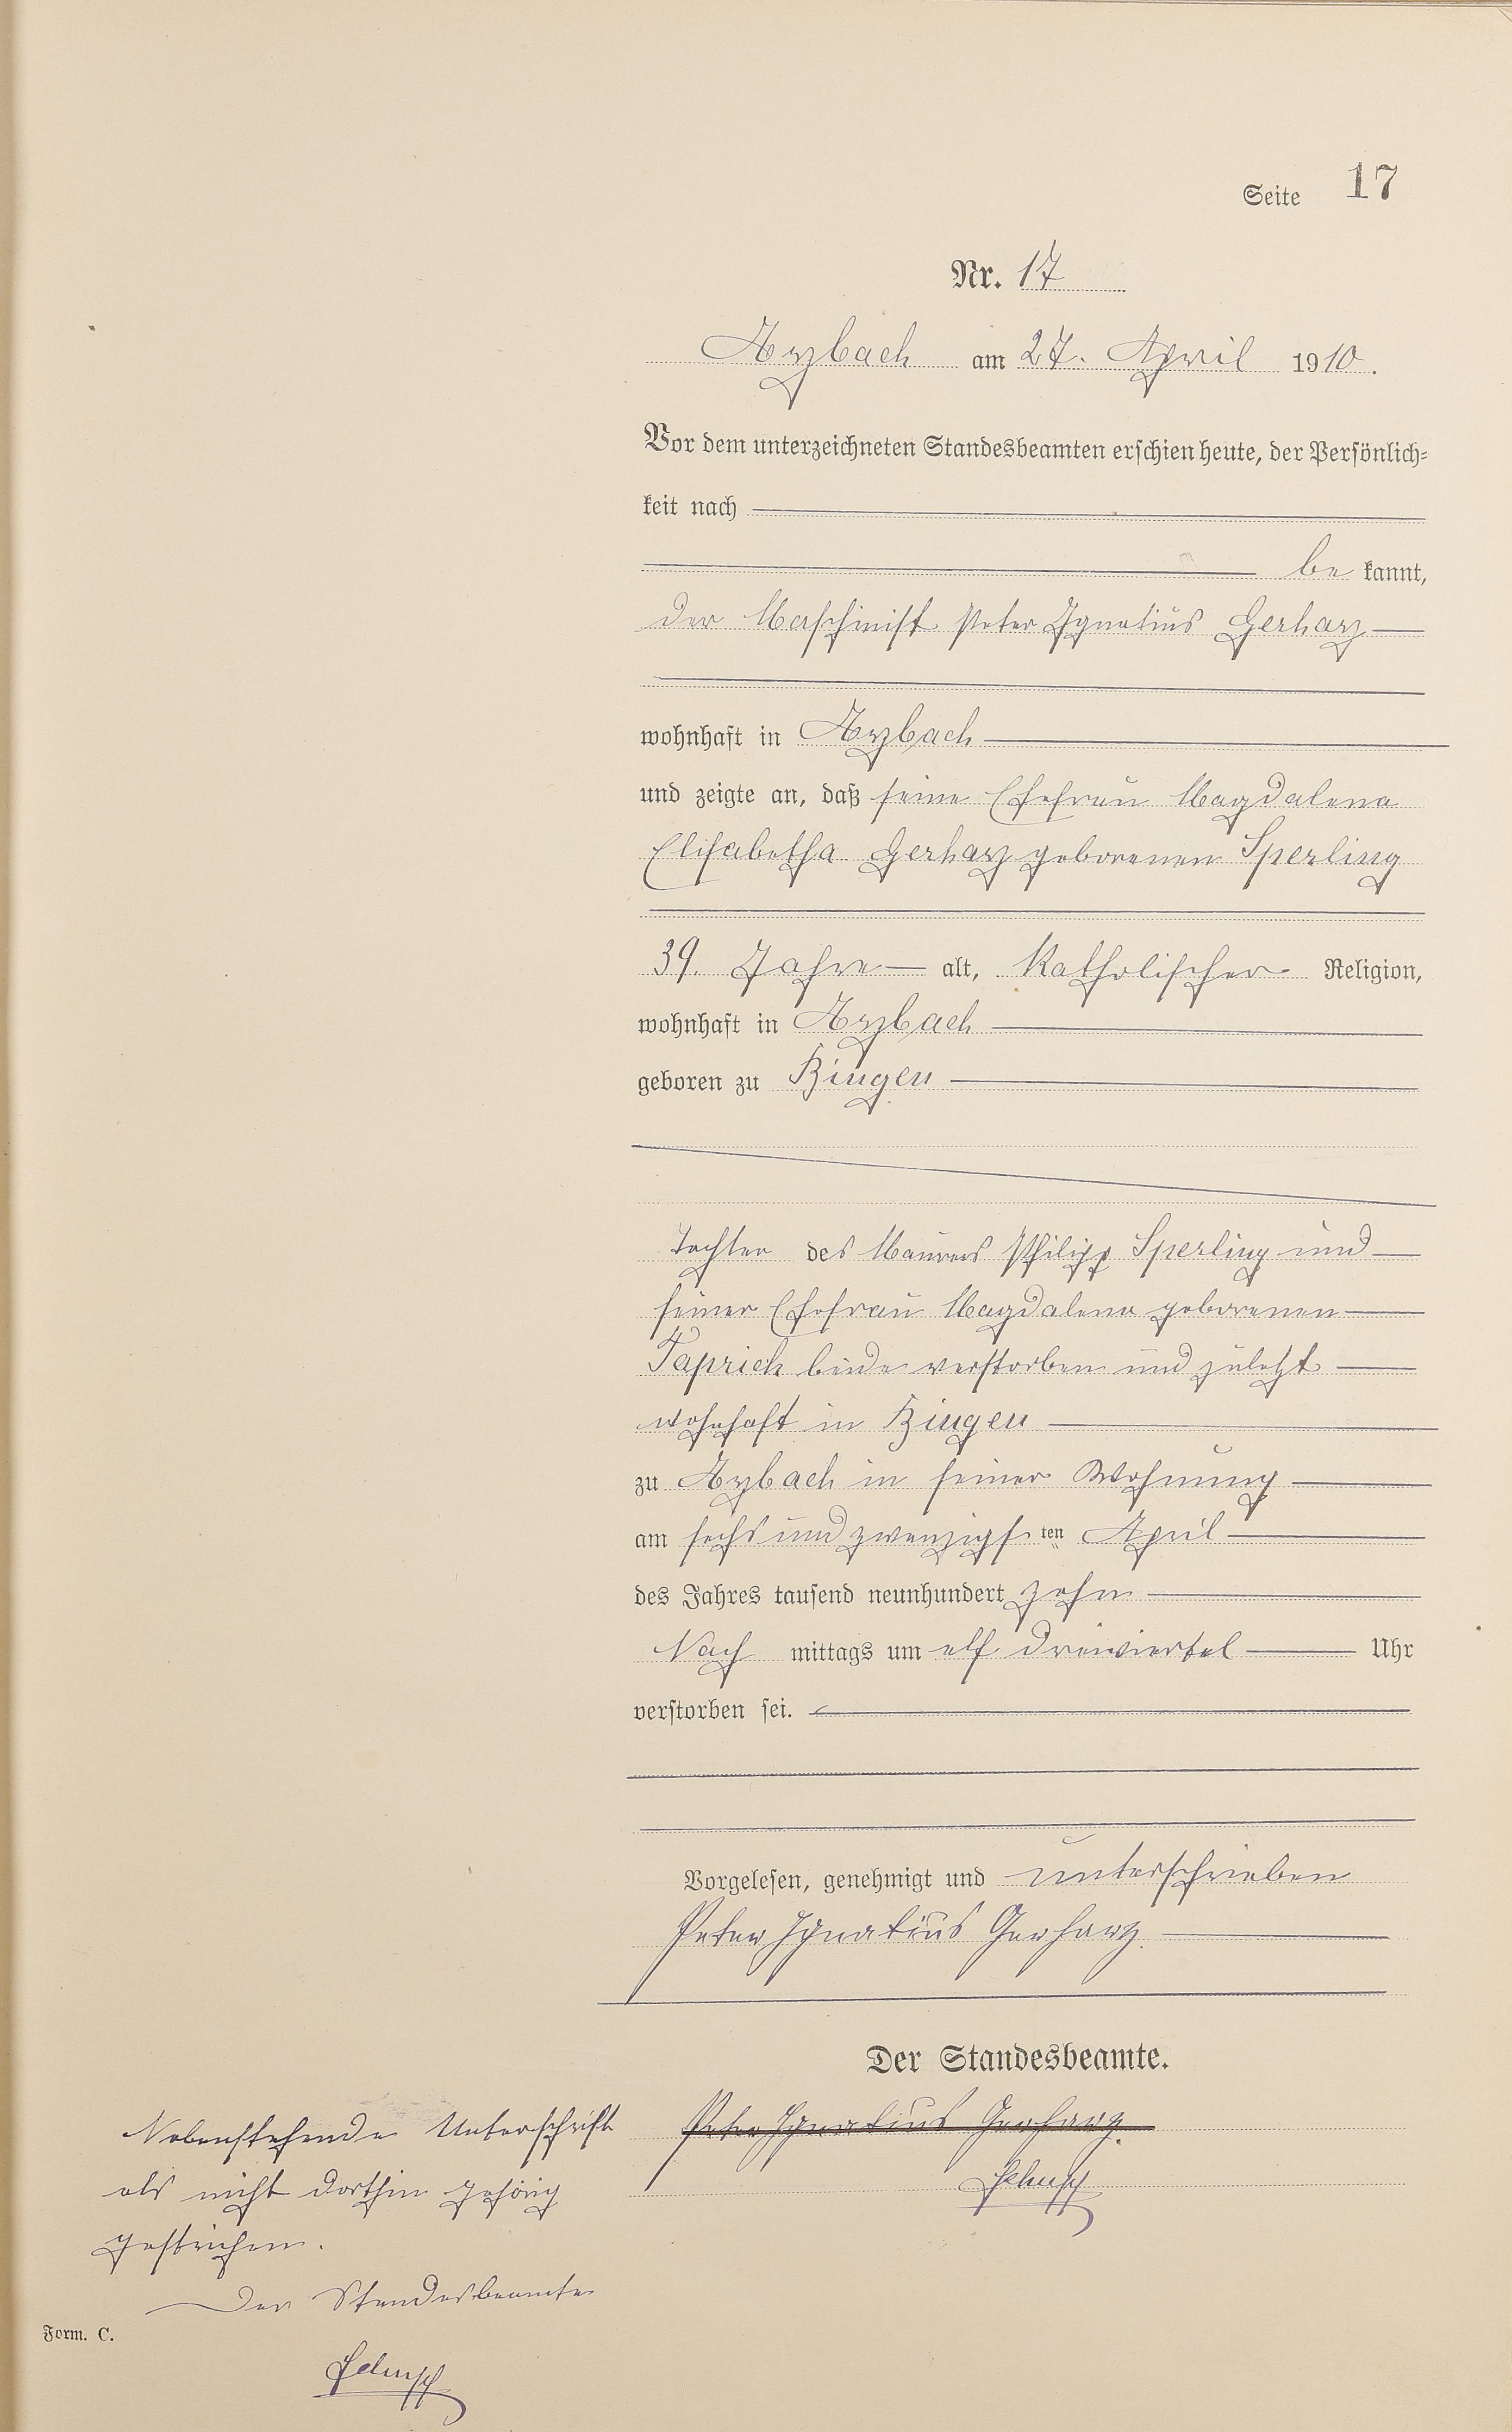 Seite 17
Nr. 17
Arzbach am 27. April 1910.
Vor dem unterzeichneten Standesbeamten erschien heute, der Persönlich=
keit nach
be kannt,
der Maschinist Peter Ignatius Gerharz
wohnhaft in Arzbach
und zeigte an, daß seine Ehefrau Magdalena
Elisabetha Gerharz geborenen Sperling
39. Jahre alt, Katholischer Religion,
wohnhaft in Arzbach
geboren zu Bingen
Tochter des Maurers Philipp Sperling und
seiner Ehefrau Magdalena geborenen
Taprich beide verstorben und zuletzt
wohnhaft in Bingen
zu Arzbach in seiner Wohnung
am sechs und zwanzigsten April
des Jahres tausend neunhundert zehn
Nach mittags um elf dreiviertel Uhr
verstorben sei.
Vorgelesen, genehmigt und unterschrieben
Peter Ignatius Gerharz.
Der Standesbeamte.
Peter Ignatius Gerharz.
Nebenstehende Unterschrift
als nicht dorthin gehörig
gestrichen.
Der Standesbeamte
Form. C.